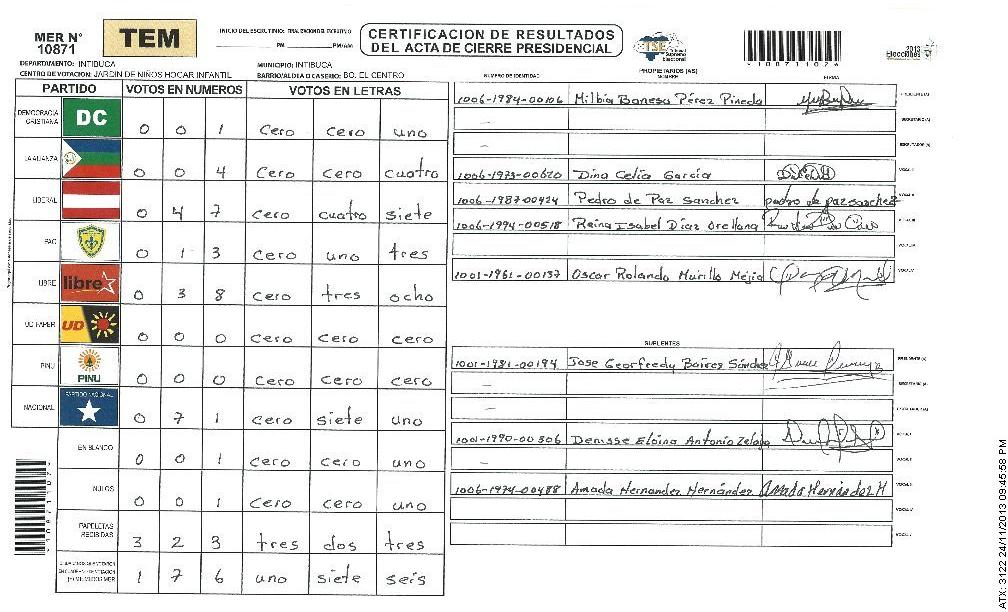 MER N° 10871
TEM
INICIO DEL ESCRUTINIO: FINALIZACION DEL ESCRUTINIO
PM PM/AM
CERTIFICACION DE RESULTADOS
DEL ACTA DE CIERRE PRESIDENCIAL
TSE Tribunal Supremo Electoral
2013 Elecciones
1 0 8 7 1 1 0 2
DEPARTAMENTO: INTIBUCA
MUNICIPIO: INTIBUCA
CENTRO DE VOTACION: JARDIN DE NIÑOS HOGAR INFANTIL
BARRIO/ALDEA O CASERIO: BO. EL CENTRO
PARTIDO VOTOS EN NUMEROS VOTOS EN LETRAS
DEMOCRACIA CRISTIANA DC 0 0 1 cero cero uno
LA ALIANZA 0 0 4 cero cero cuatro
LIBERAL 0 4 7 cero cuatro siete
PAC 0 1 3 cero uno tres
LIBRE libre 0 3 8 cero tres ocho
UD-FAPER UD 0 0 0 cero cero cero
PINU PINU 0 0 0 cero cero cero
NACIONAL PARTIDO NACIONAL 0 7 1 cero siete uno
EN BLANCO 0 0 1 cero cero uno
NULOS 0 0 1 cero cero uno
PAPELETAS RECIBIDAS 3 2 3 tres dos tres
1 7 6 uno siete seis
NUMERO DE IDENTIDAD PROPIETARIOS (AS) NOMBRE FIRMA
1006-1984-00106 Milbia Banesa Pérez Pineda PRESIDENTE(A)
— SECRETARIO (A)
— ESCRUTADOR (A)
1006-1973-00620 Dina Celia García VOCAL I
1006-1987-00424 Pedro de Paz Sanchez pedro de paz sanchez VOCAL II
1006-1994-00518 Reina Isabel Díaz Orellana VOCAL III
—
1001-1961-00137 Oscar Rolando Murillo Mejía VOCAL V
SUPLENTES
1001-1981-00194 Jose Georfredy Baires Sánchez PRESIDENTE (A)
— SECRETARIO (A)
— ESCRUTADOR (A)
1001-1990-00306 Denisse Eloina Antonio Zelaya VOCAL I
— VOCAL II
1006-1974-00488 Amada Hernandez Hernández Amada Hernández H VOCAL III
VOCAL IV
VOCAL V
1 0 8 7 1 1 0 2
ATX: 3122 24/11/2013 09:45:58 PM